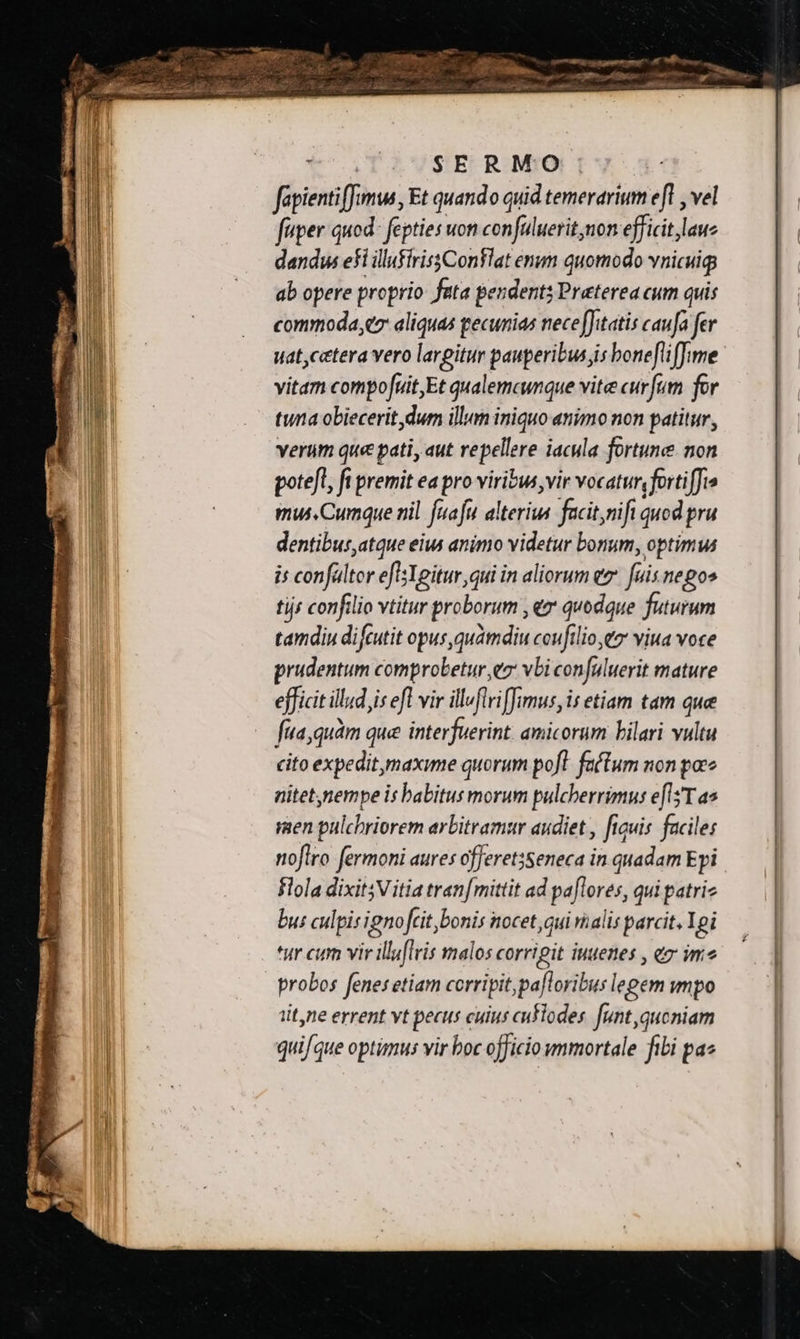 SERMO
sapientissimus, Et quando quid temerarium est, vel
super quod septies uon consuluerit, non efficit, lau⸗
dandus est illustris; Constat enim quomodo vnicuiqꝫ
ab opere proprio fata pendent; Præterea cum quis
commoda, & aliquas pecunias necessitatis causa ser
uat, cætera vero largitur pauperibus, is honestissime
vitam composuit, Et qualemcunque vitæ cursum for
tuna obiecerit, dum illum iniquo animo non patitur,
verum quæ pati, aut repellere iacula fortunæ non
potest, si premit ea pro viribus, vir vocatur, fortissi⸗
mus. Cumque nil suasu alterius facit, nisi quod pru
dentibus, atque eius animo videtur bonum, optimus
is consultor est; Igitur, qui in aliorum & suis nego⸗
tijs consilio vtitur proborum, & quodque futurum
tamdiu discutit opus, quàmdiu cousilio, & viua voce
prudentum comprobetur, & vbi consuluerit mature
efficit illud, is est vir illustrissimus, is etiam tam quæ
sua, quàm quæ interfuerint amicorum hilari vultu
cito expedit, maxime quorum post factum non pœ⸗
nitet, nempe is habitus morum pulcherrimus est; Ta⸗
men pulchriorem arbitramur audiet, siquis faciles
nostro sermoni aures offeret; Seneca in quadam Epi
stola dixit; Vitia transmittit ad pastores, qui patri⸗
bus culpis ignoscit, bonis nocet, qui malis parcit. Igi
tur cum vir illustris malos corrigit iuuenes, & im⸗
probos senes etiam corripit, pastoribus legem impo
nit, ne errent vt pecus cuius custodes sunt, quoniam
quisque optimus vir hoc officio immortale sibi pa⸗